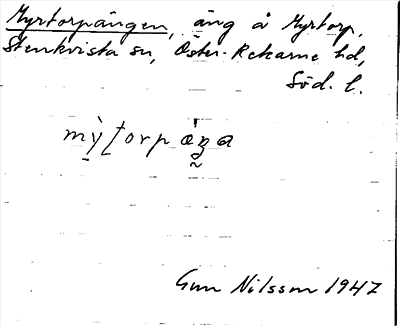 Myrtorpängen, äng å Myrtorp,
Stenkvista sn, Öster-Rekarne hd,
Söd. l.
Gun Nilsson 1947